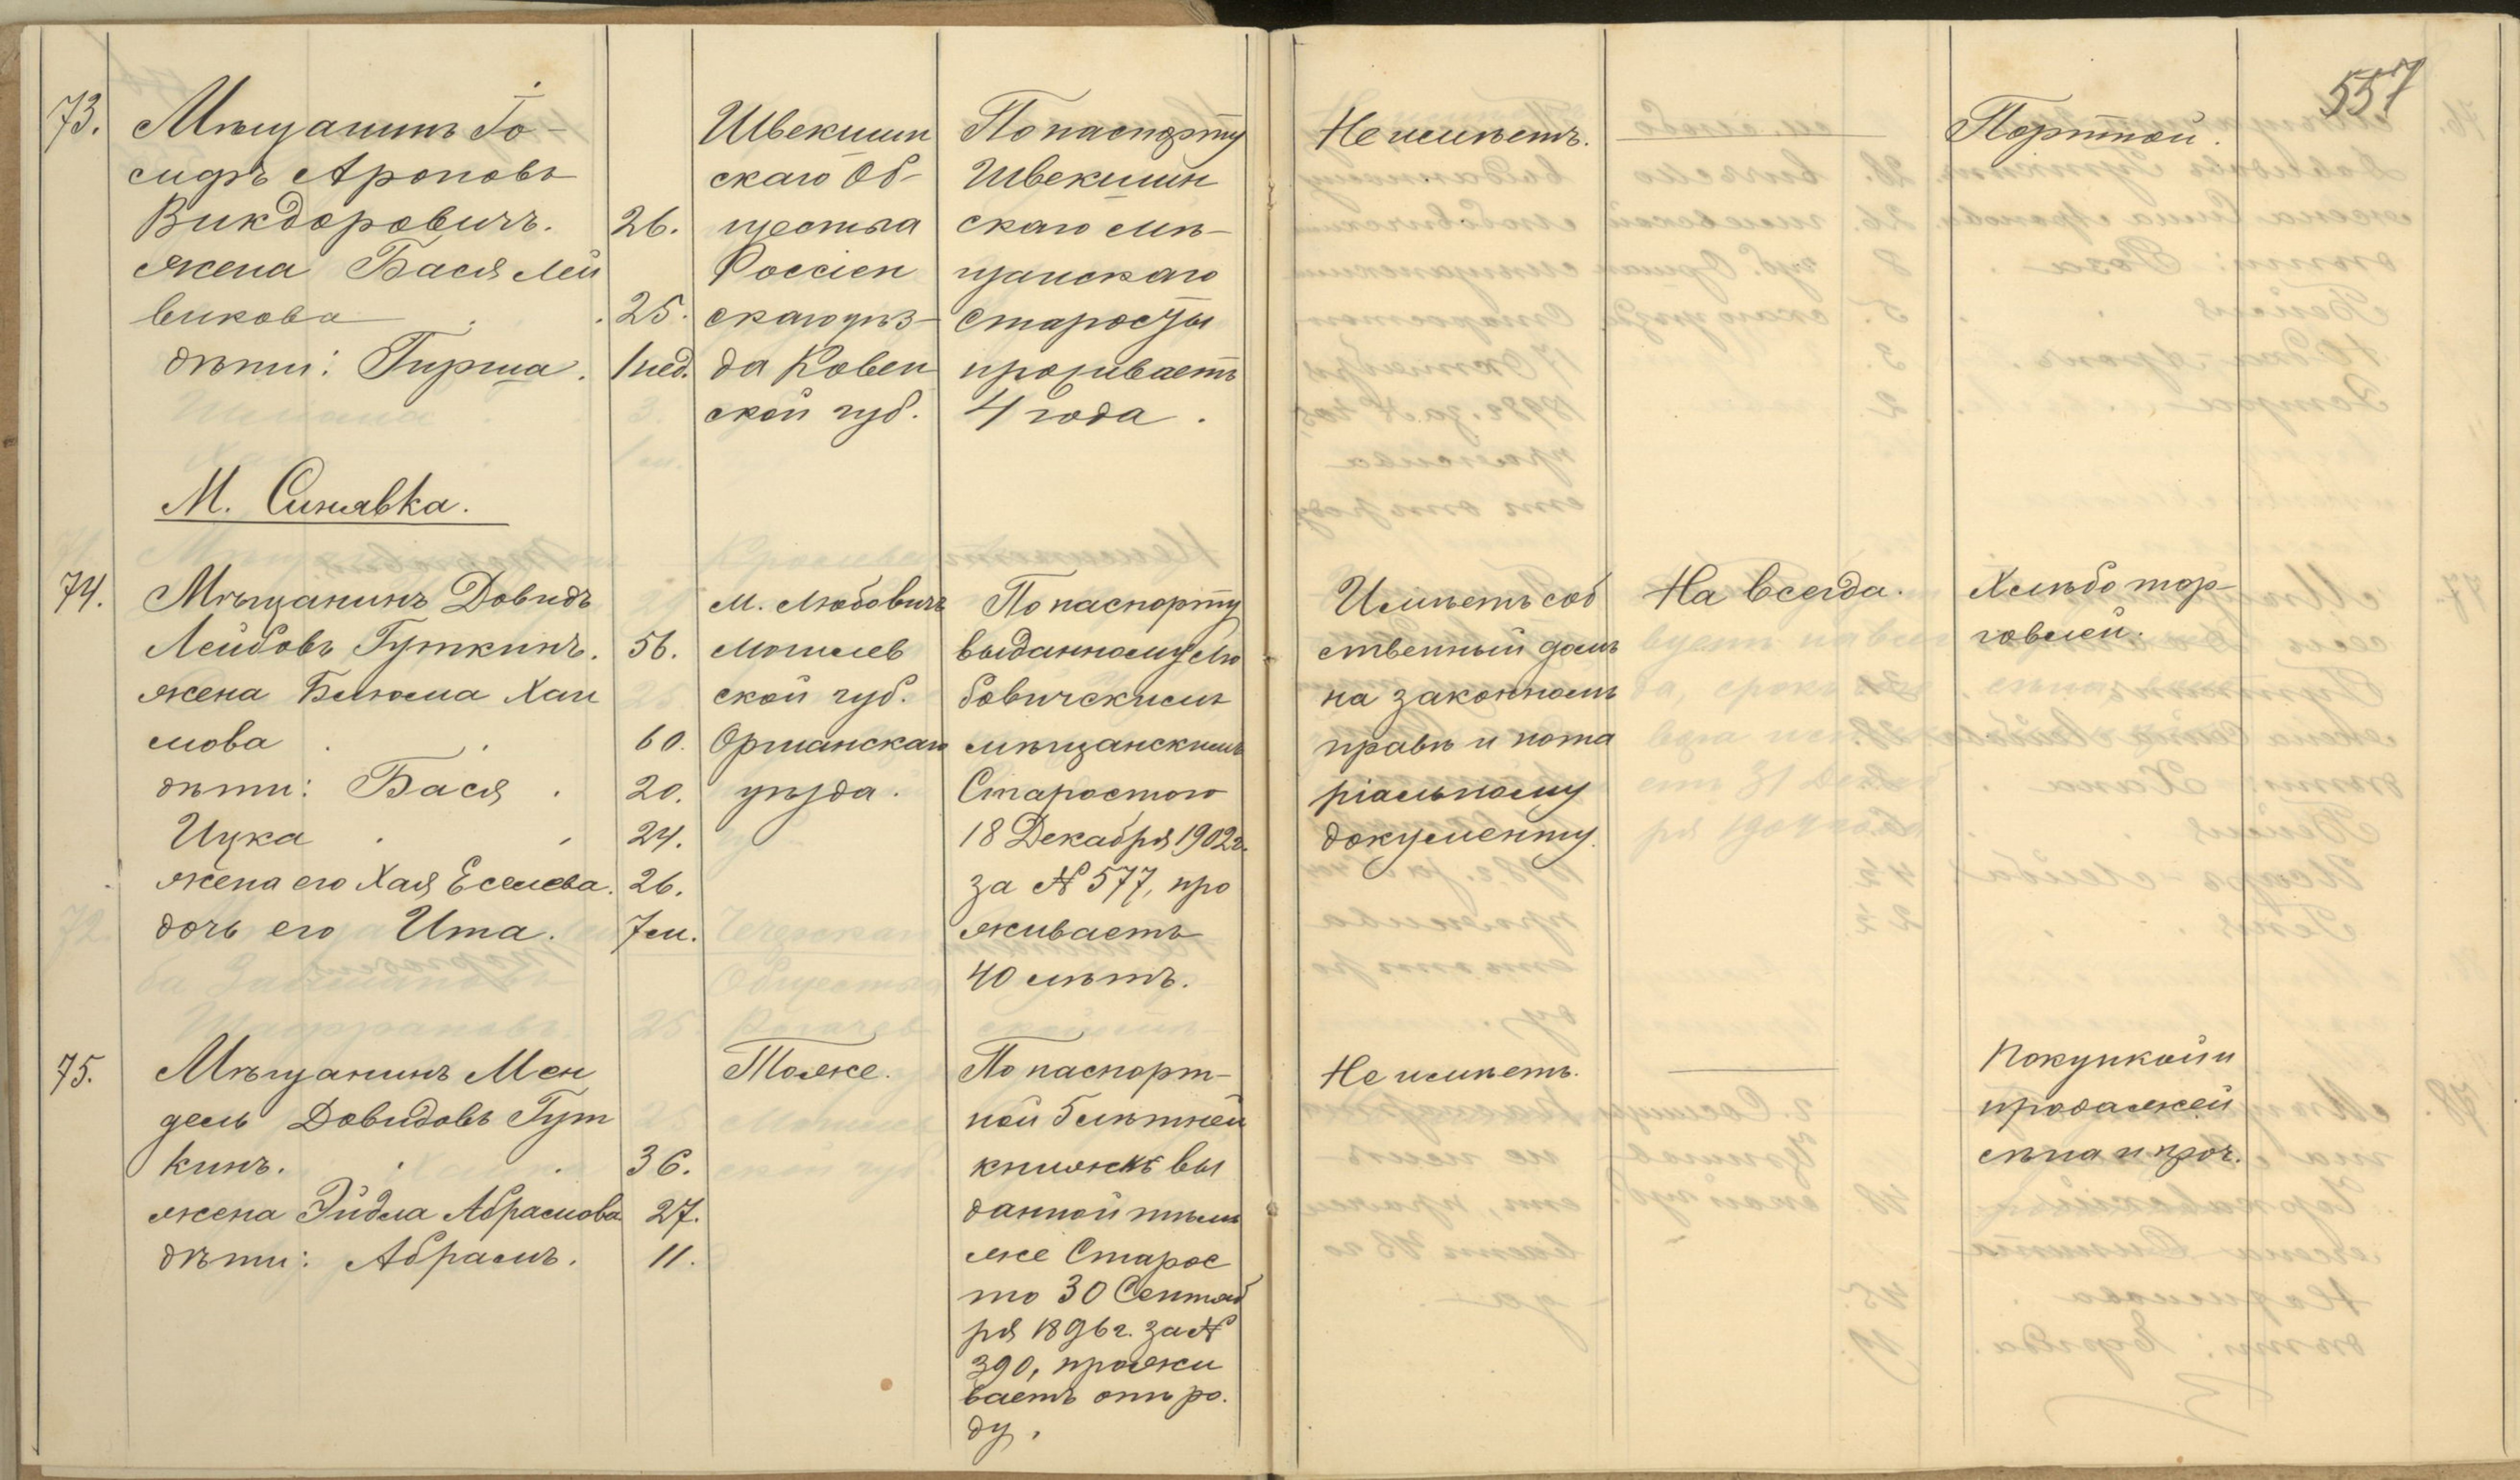 557
73.
Мѣщанинъ Іо-
сифъ Ароновъ
Викдоровичъ. 26.
жена Бася Лей
викова 25.
дѣти: Гирша. 1 нед.
Швекшин
скаго Об-
щества
Россіен
скаго уѣз-
да Ковен
ской губ.
По паспорту
Швекшин
скаго мѣ-
щанскаго
старосты
проживаетъ
4 года.
Не имѣетъ.
Портной.
М. Синявка.
74.
Мѣщанинъ Довидъ
Лейбовъ Гуткинъ. 56.
жена Блюма Хаи
мова 60.
дѣти: Бася 20.
Ицка 24.
жена его Хая Еселева. 26.
дочь его Ита. 7 м.
м. Любовичъ
Могилев
ской губ.
Оршанскаго
уѣзда.
По паспорту
выданному Лю
бовичскимъ
мѣщанскимъ
Старостою
18 Декабря 1902 г.
за № 577, про
живаетъ
40 лѣтъ.
Имѣетъ соб
ственный домъ
на законномъ
правѣ и нота
ріальному
документу.
На всегда.
Хлѣбо тор-
говлей.
75.
Мѣщанинъ Мен
дель Довидовъ Гут
кинъ. 36.
жена Эйдла Абрамова 27.
дѣти: Абрамъ. 11.
Тоже.
По паспорт-
ной 5 лѣтней
книжкѣ вы
данной тѣмъ
же Старос
то 30 Сентяб
ря 1896 г. за №
390, прожи
ваетъ отъ ро.
ду.
Не имѣетъ.
Покупкой и
продажей
сѣна и проч.